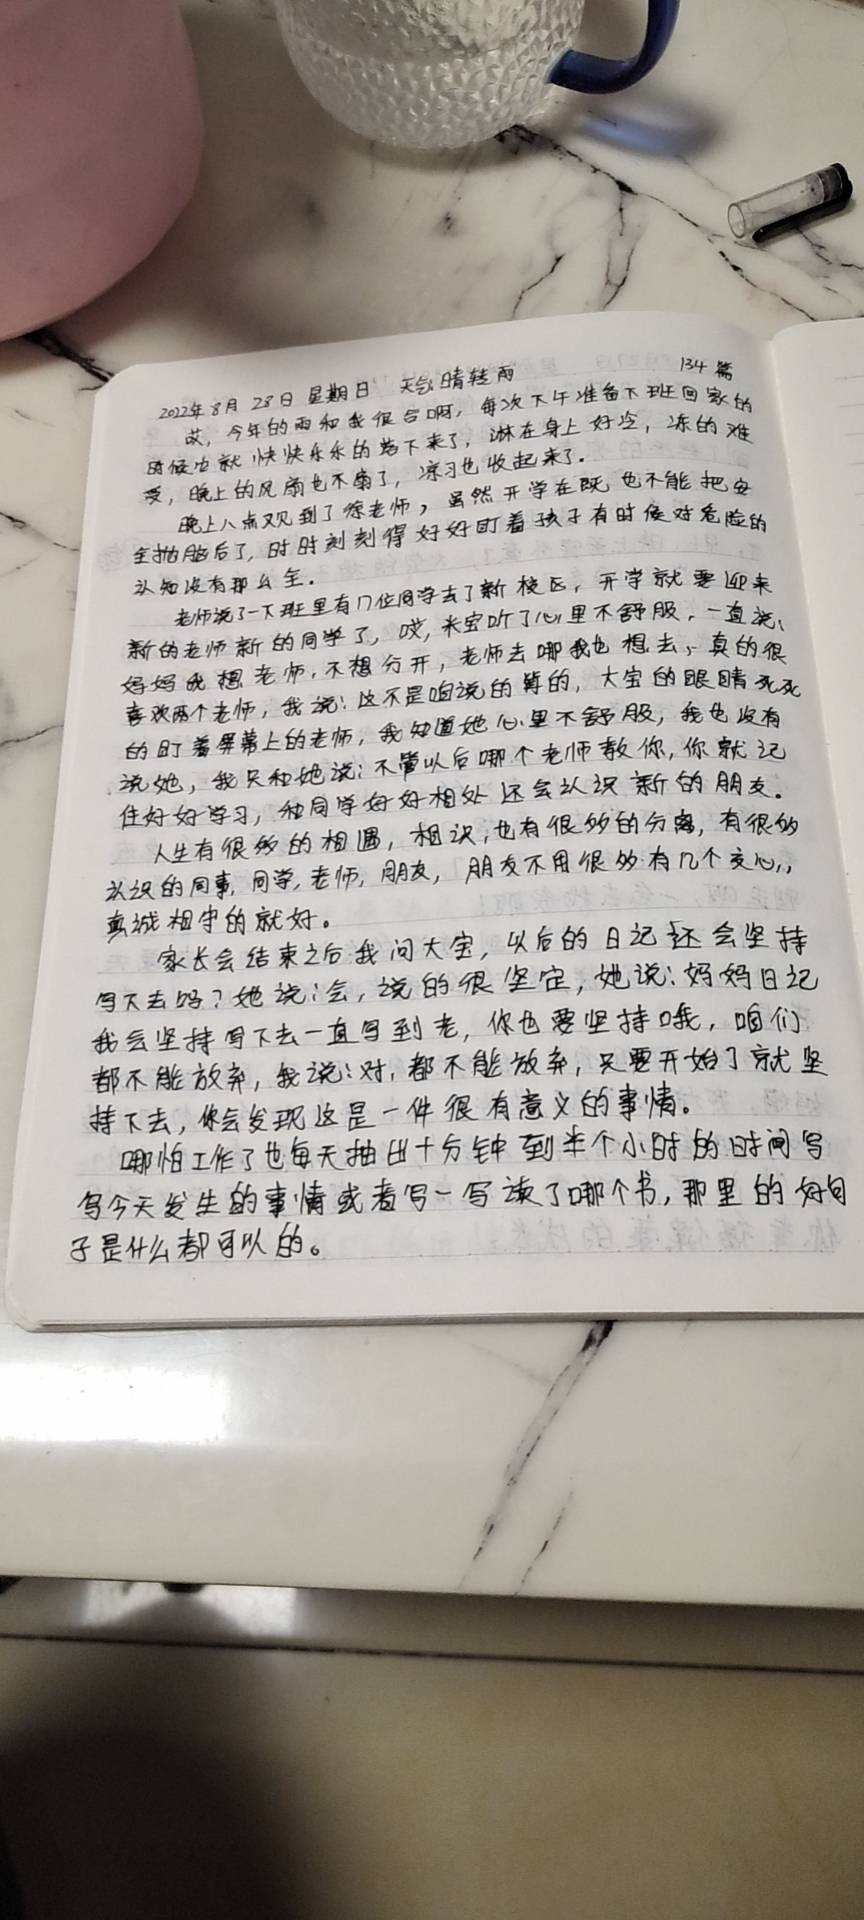 2022年8月28日 星期日 天气晴转雨 134篇
哎,今年的雨和我很合啊,每次下午准备下班回家的
时候他就快快乐乐的落下来了,淋在身上好冷,冻的难
受,晚上的风扇也不扇了,凉习也收起来了.
晚上八点又见到了徐老师,虽然开学在既也不能把安
全抛脑后了,时时刻刻得好好盯着孩子有时候对危险的
认知没有那么全.
老师说了一下班里有几位同学去了新校区,开学就要迎来
新的老师新的同学了,哎,大宝听了心里不舒服,一直说:
妈妈我想老师,不想分开,老师去哪我也想去,真的很
喜欢两个老师,我说:这不是咱说的算的,大宝的眼睛死死
的盯着屏幕上的老师,我知道她心里不舒服,我也没有
说她,我只和她说:不管以后哪个老师教你,你就记
住好好学习,和同学好好相处还会认识新的朋友。
人生有很多的相遇,相识,也有很多的分离,有很多
认识的同事,同学,老师,朋友,朋友不用很多有几个交心,
真诚相守的就好。
家长会结束之后我问大宝,以后的日记还会坚持
写下去吗?她说:会,说的很坚定,她说:妈妈日记
我会坚持写下去一直写到老,你也要坚持哦,咱们
都不能放弃,我说:对,都不能放弃,只要开始了就坚
持下去,你会发现这是一件很有意义的事情。
哪怕工作了也每天抽出十分钟到半个小时的时间写
写今天发生的事情或者写一写读了哪个书,那里的好句
子是什么都可以的。